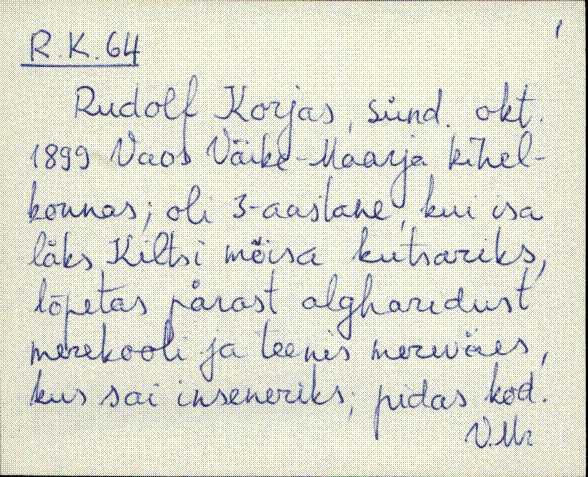 1
R.K.64
Rudolf Korjas, sünd. okt.
1899 Vaos Väike-Maarja kihel-
konnas; oli 3-aastane, kui isa
läks Kiltsi mõisa kutsariks,
lõpetas pärast algharidust
merekooli ja teenis merwäes,
kus sai inseneriks; pidas kod.
V.Mr